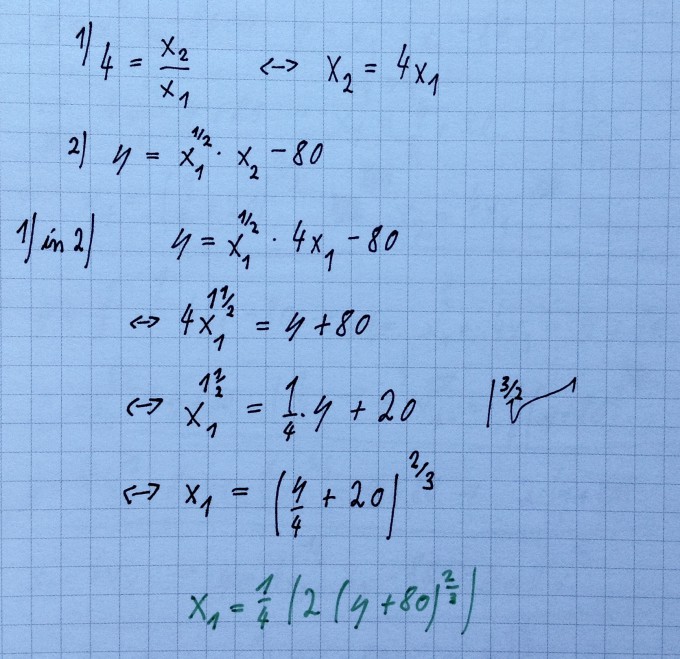 1) 4 = x₂/x₁ ↔ x₂ = 4x₁
2) y = x₁^(1/2) · x₂ − 80
1) in 2) y = x₁^(1/2) · 4x₁ − 80
↔ 4x₁^(1 1/2) = y + 80
↔ x₁^(1 1/2) = 1/4 · y + 20 | ^(3/2)√
↔ x₁ = (y/4 + 20)^(2/3)
x₁ = 1/4 (2 (y + 80)^(2/3))